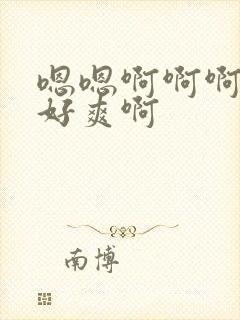 嗯嗯啊啊啊
好爽啊
南博